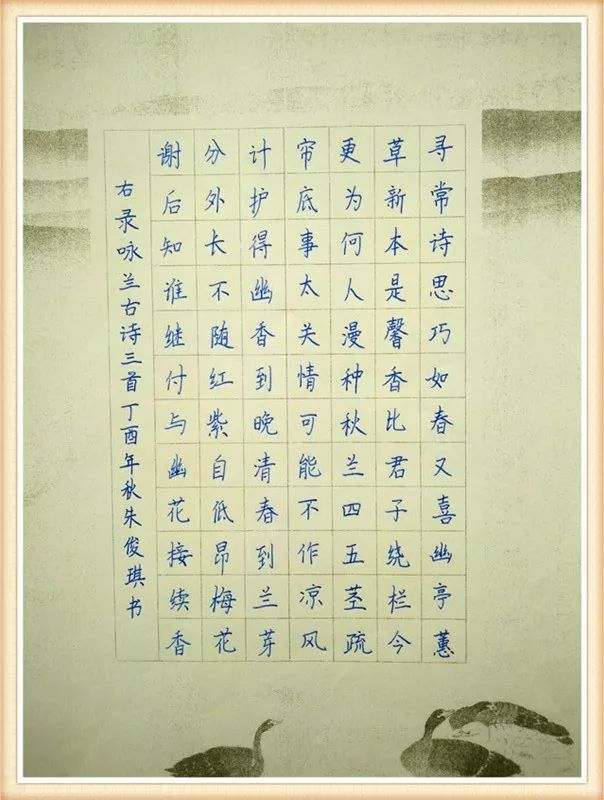 寻常诗思巧如春又喜幽亭蕙
草新本是馨香比君子绕栏今
更为何人漫种秋兰四五茎疏
帘底事太关情可能不作凉风
计护得幽香到晚清春到兰芽
分外长不随红紫自低昂梅花
谢后知谁继付与幽花接续香
右录咏兰古诗三首丁酉年秋朱俊琪书